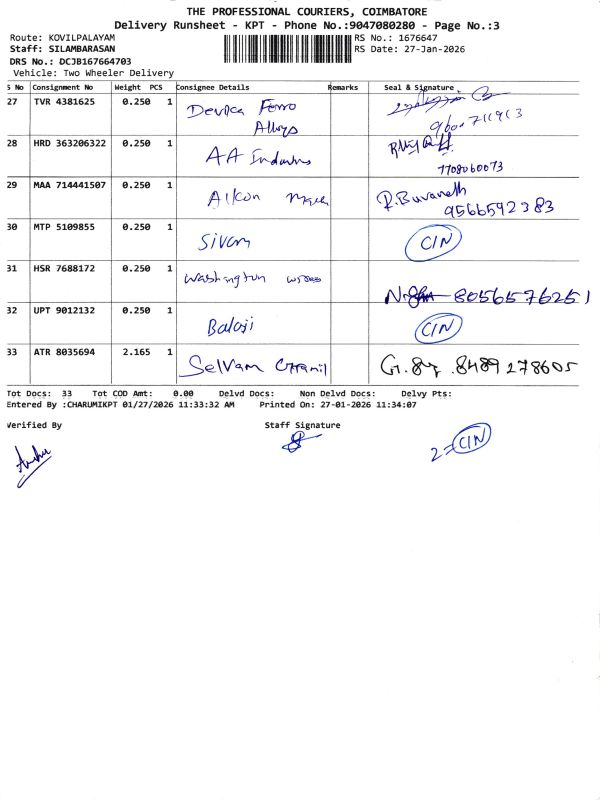 THE PROFESSIONAL COURIERS, COIMBATORE
Delivery Runsheet - KPT - Phone No.:9047080280 - Page No.:3
Route: KOVILPALAYAM RS No.: 1676647
Staff: SILAMBARASAN RS Date: 27-Jan-2026
DRS No.: DCJB167664703
Vehicle: Two Wheeler Delivery
S No Consignment No Weight PCS Consignee Details Remarks Seal & Signature
27 TVR 4381625 0.250 1 Devika Ferro
Alloys
28 HRD 363206322 0.250 1 AA Industries
7708060073
29 MAA 714441507 0.250 1 Alkon R.Buvanesh
9566592383
30 MTP 5109855 0.250 1 Sivam CIN
31 HSR 7688172 0.250 1 Washington
8056576251
32 UPT 9012132 0.250 1 Balaji CIN
33 ATR 8035694 2.165 1 Selvam 8489278605
Tot Docs: 33 Tot COD Amt: 0.00 Delvd Docs: Non Delvd Docs: Delvy Pts:
Entered By :CHARUMIKPT 01/27/2026 11:33:32 AM Printed On: 27-01-2026 11:34:07
Verified By Staff Signature
2=CIN